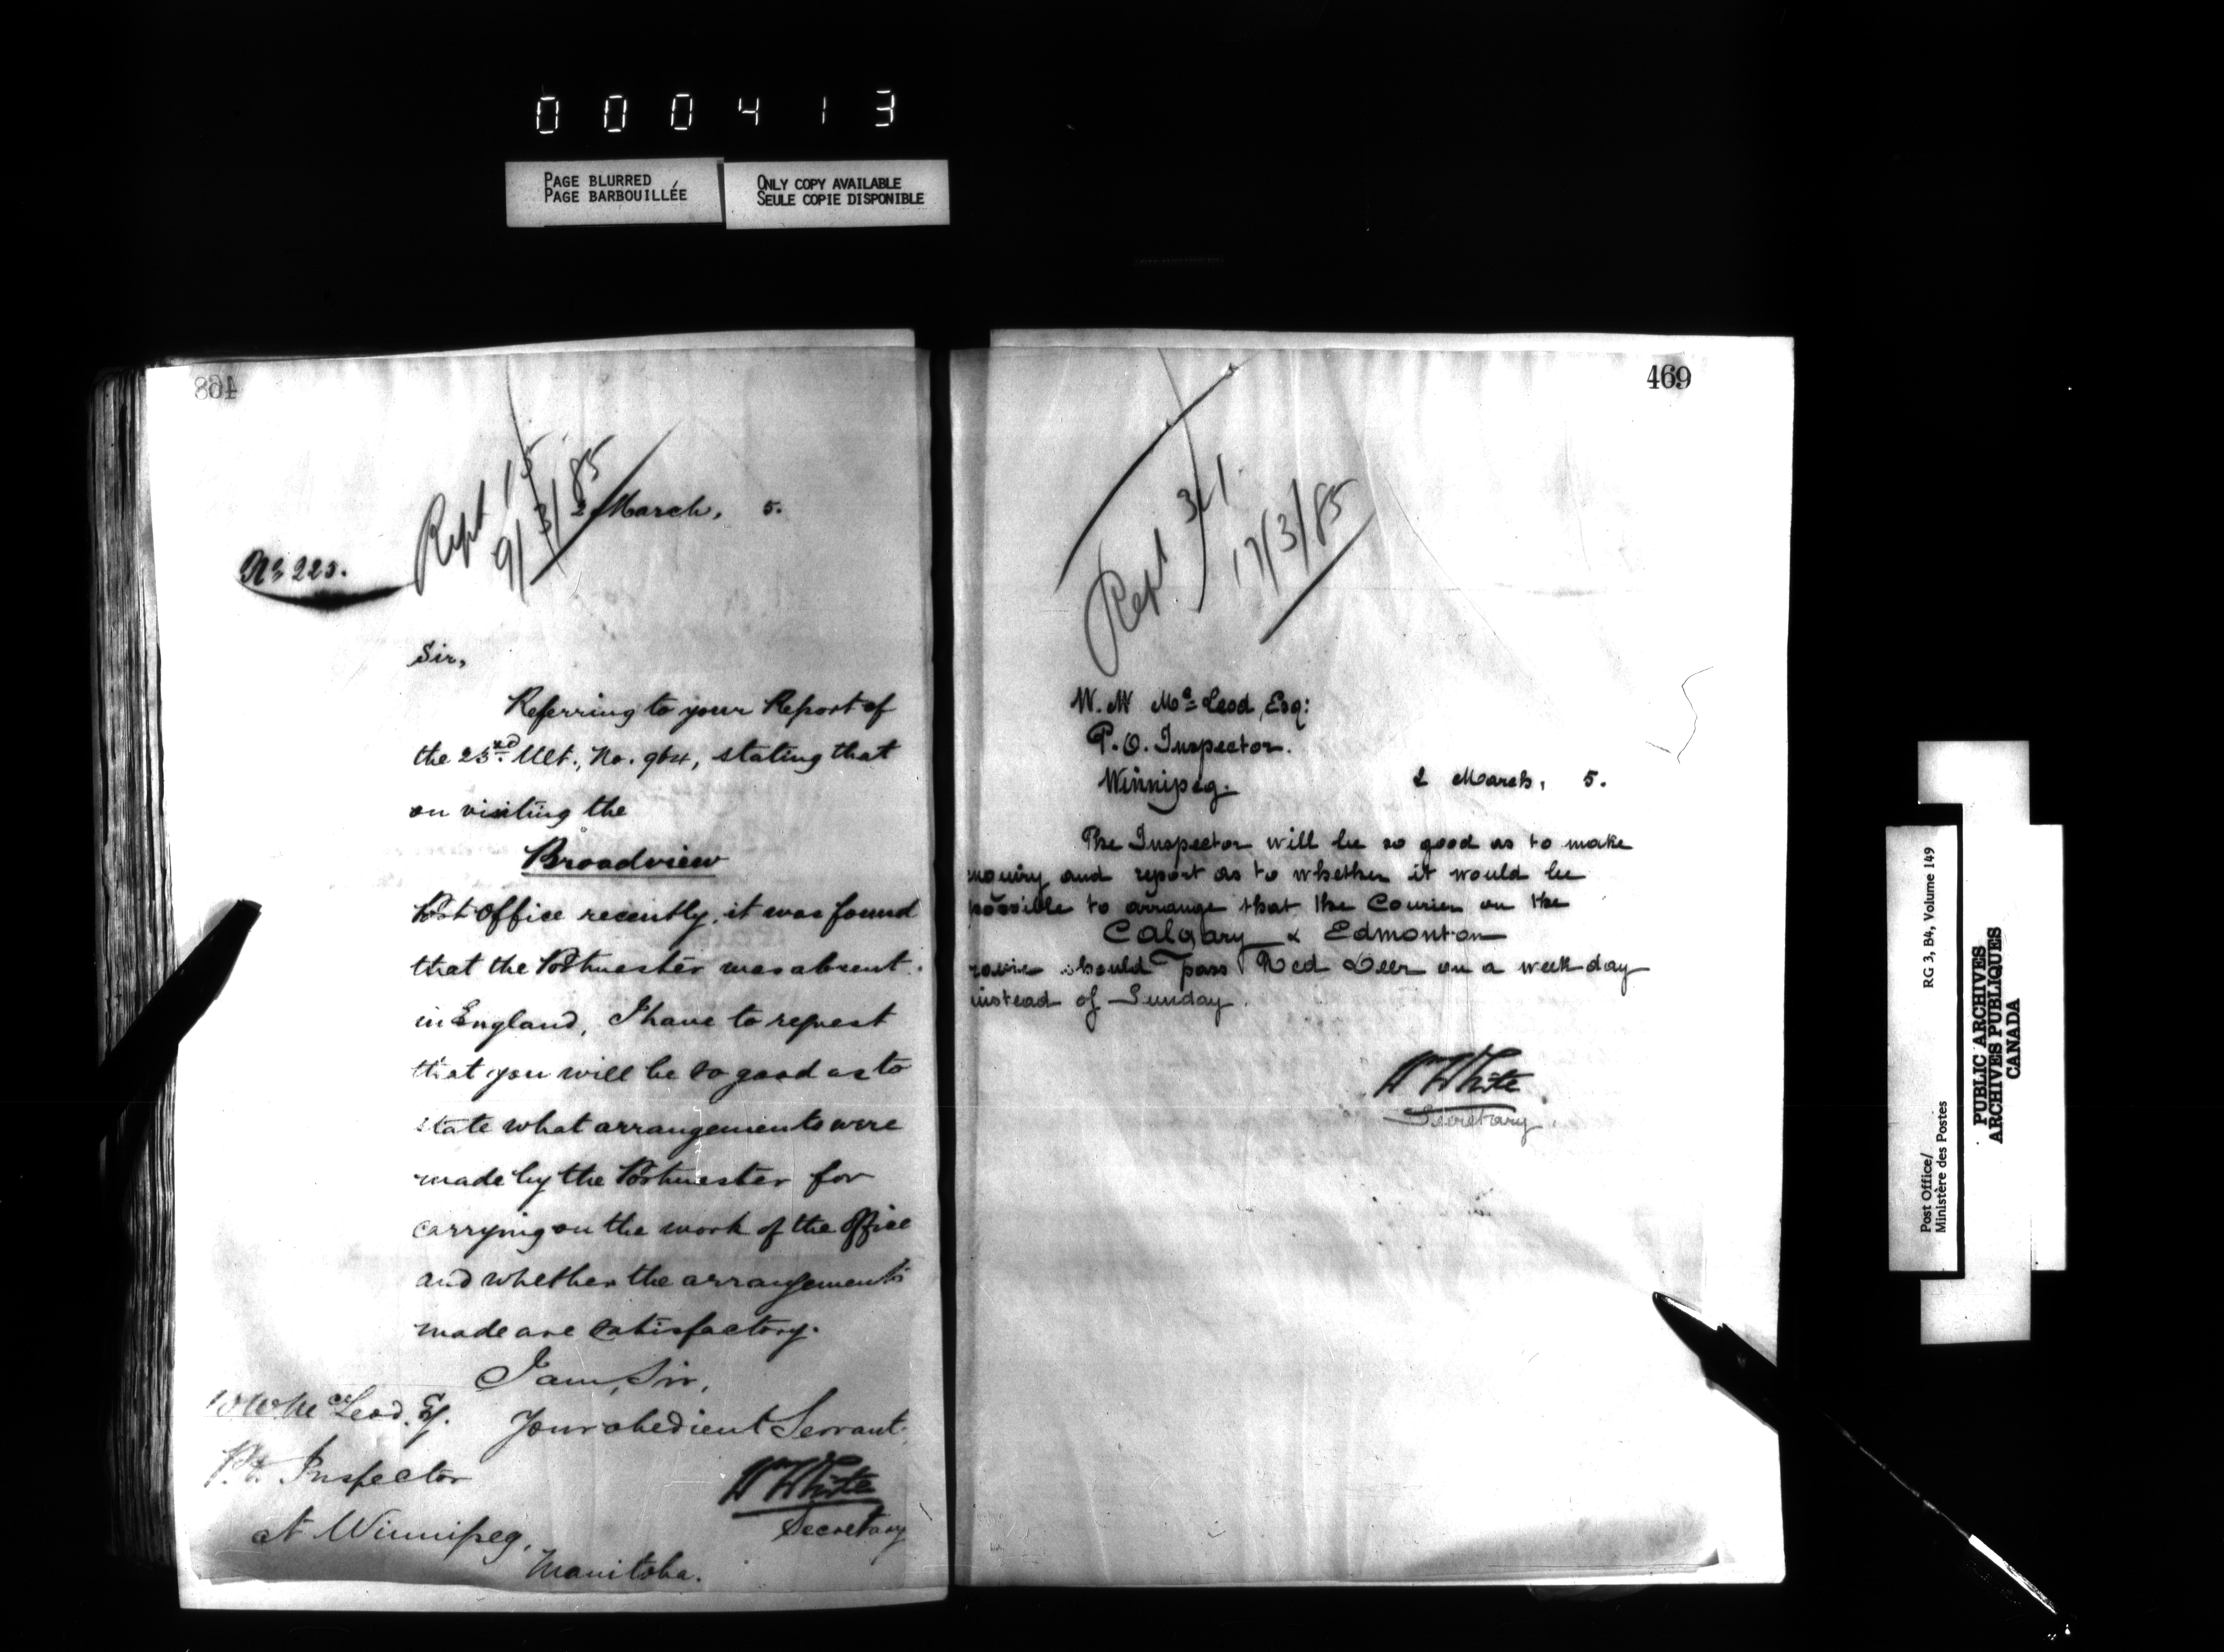 000413
PAGE BLURRED
PAGE BARBOUILLÉE
ONLY COPY AVAILABLE
SEULE COPIE DISPONIBLE
468
Rept 15
9/3/85
2 March, 5.
No 223.
Sir,
Referring to your Report of
the 23rd Ult., No. 964, stating that
on visiting the
Broadview
Post Office recently, it was found
that the Postmaster was absent
in England, I have to request
that you will be so good as to
state what arrangements were
made by the Postmaster for
carrying on the work of the Office
and whether the arrangements
made are satisfactory.
I am, Sir,
Your obedient Servant
W W McLeod, Esq.
P.O. Inspector
at Winnipeg,
Manitoba.
Wm White
Secretary
469
Rept
17/3/85
W. W McLeod, Esq:
P.O. Inspector.
Winnipeg.
2 March, 5.
The Inspector will be so good as to make
enquiry and report as to whether it would be
possible to arrange that the Courier on the
Calgary & Edmonton
route should pass Red Deer on a week day
instead of Sunday.
Wm White
Secretary.
Post Office/
Ministère des Postes
RG 3, B4, Volume 149
PUBLIC ARCHIVES
ARCHIVES PUBLIQUES
CANADA